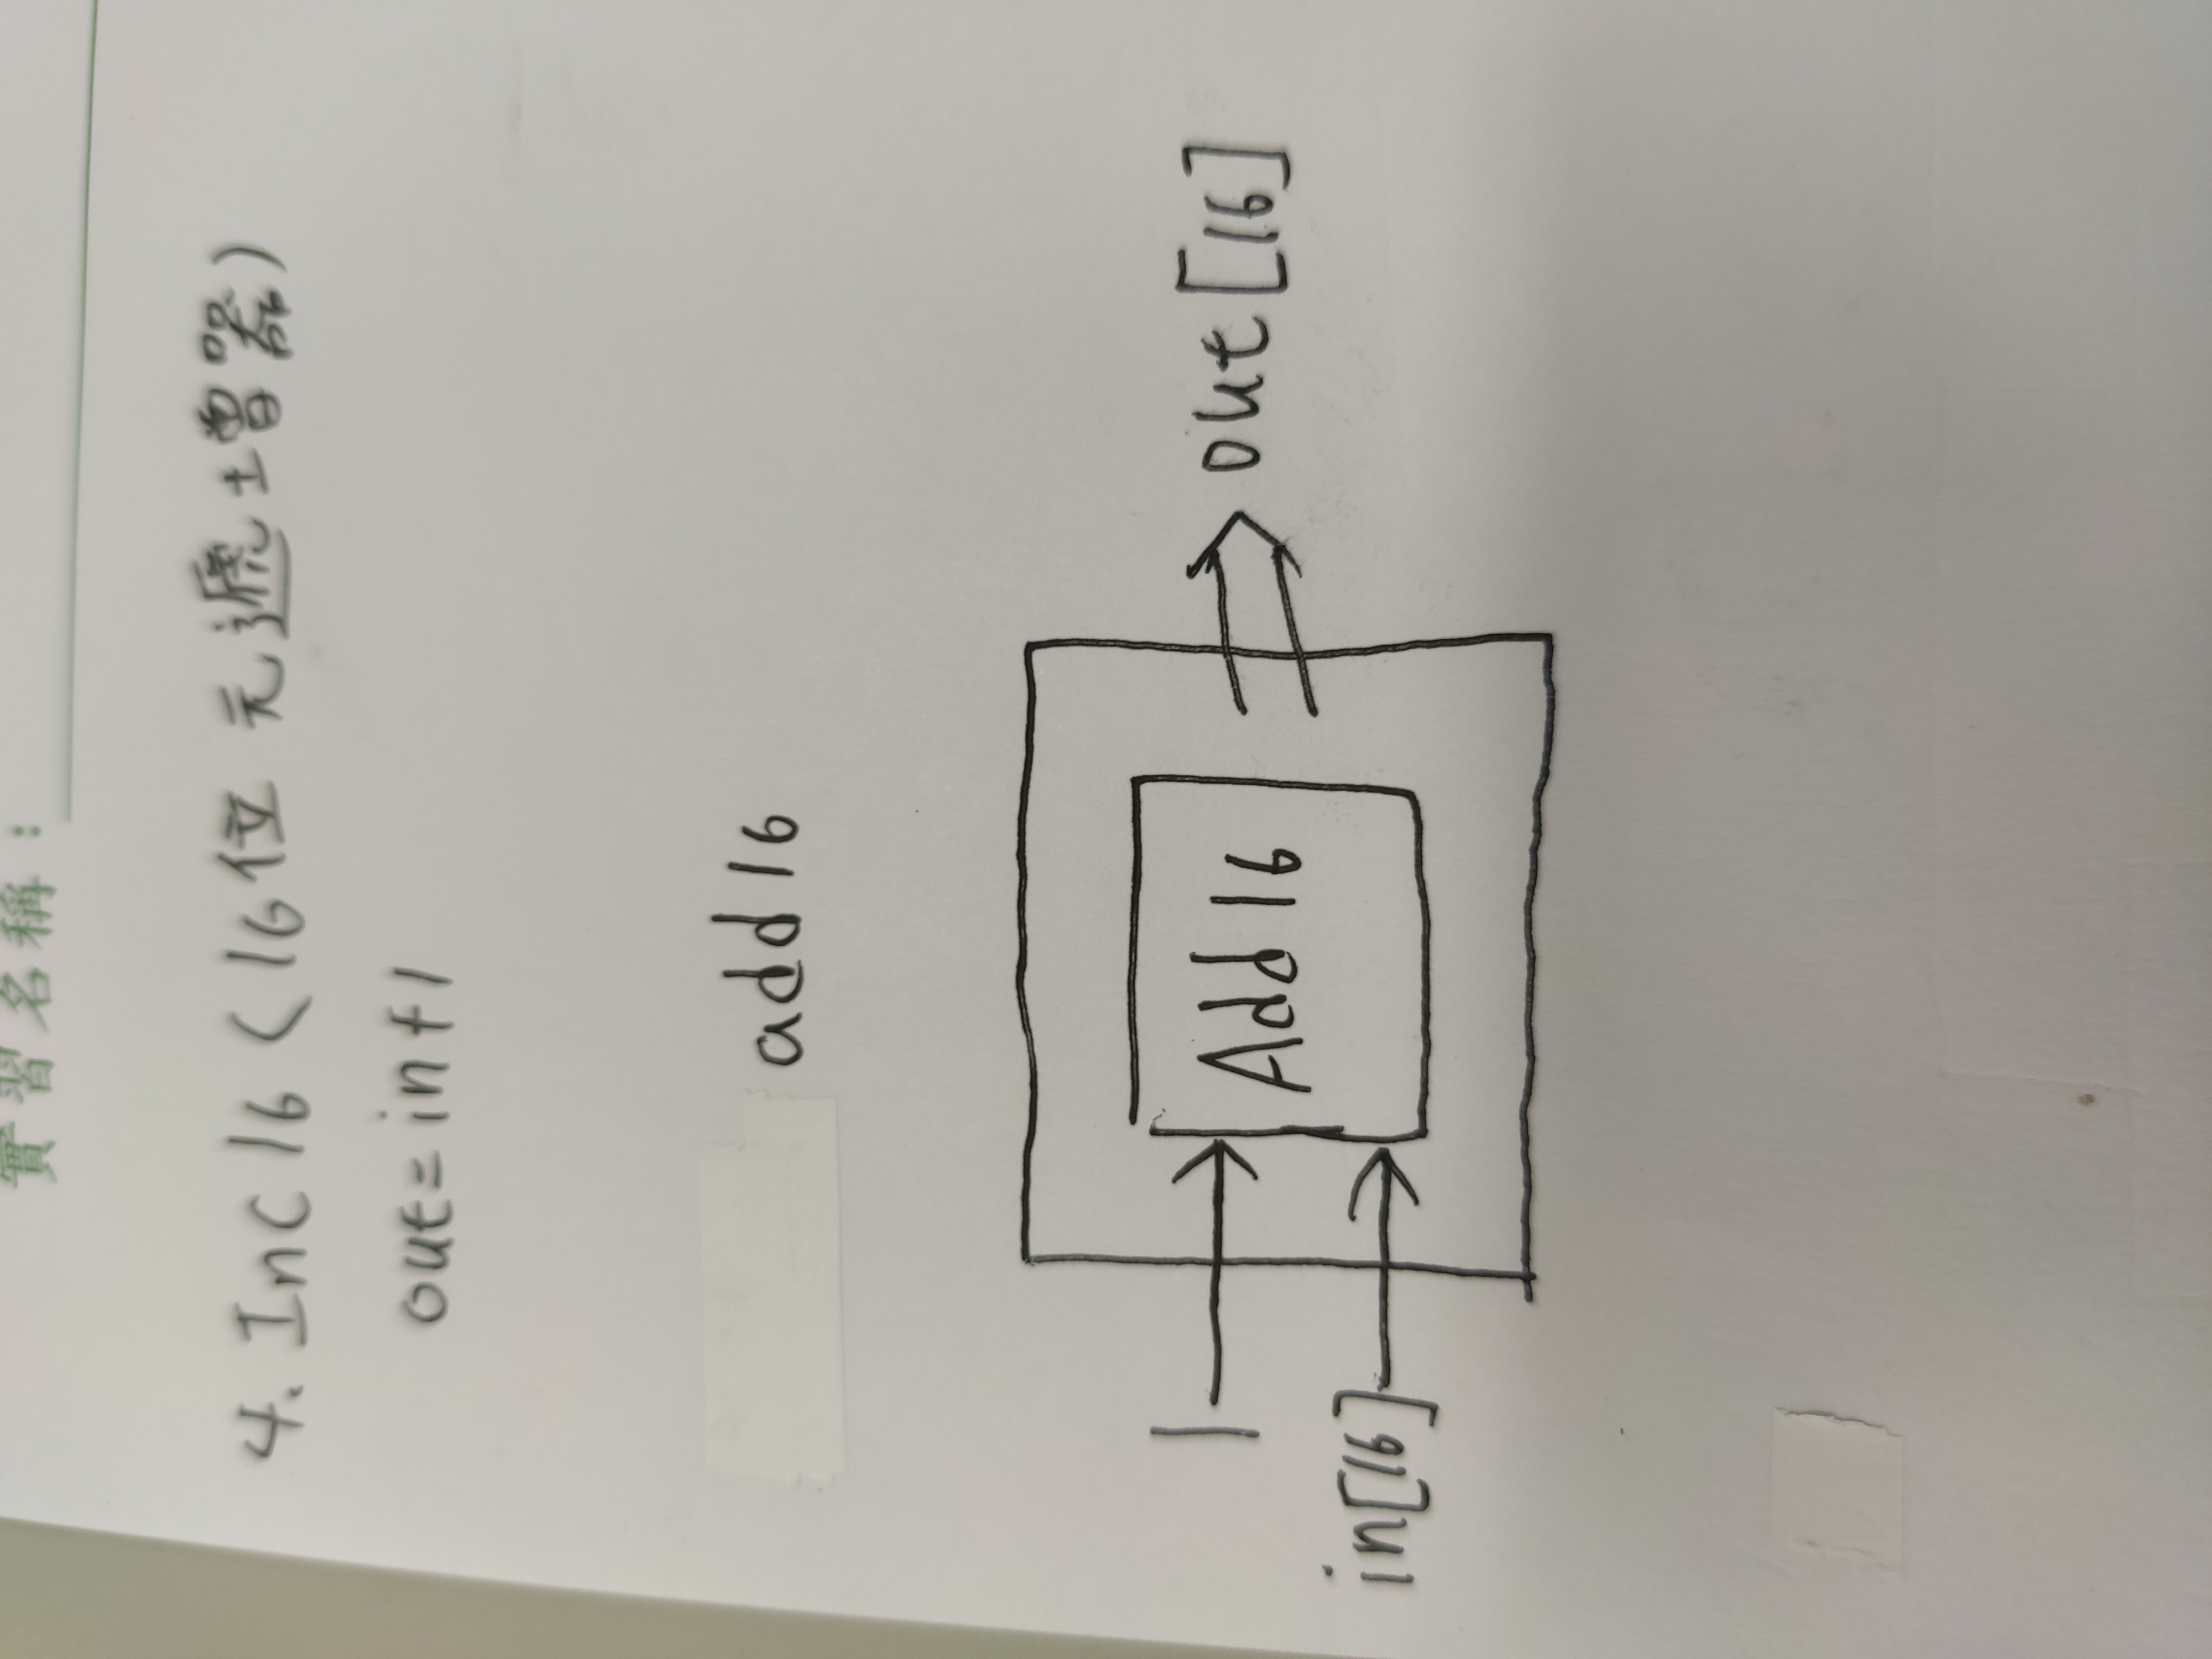 實習名稱：
4. Inc 16 (16位元遞增器)
out = in + 1
add 16
1
Add 16
out [16]
in[16]